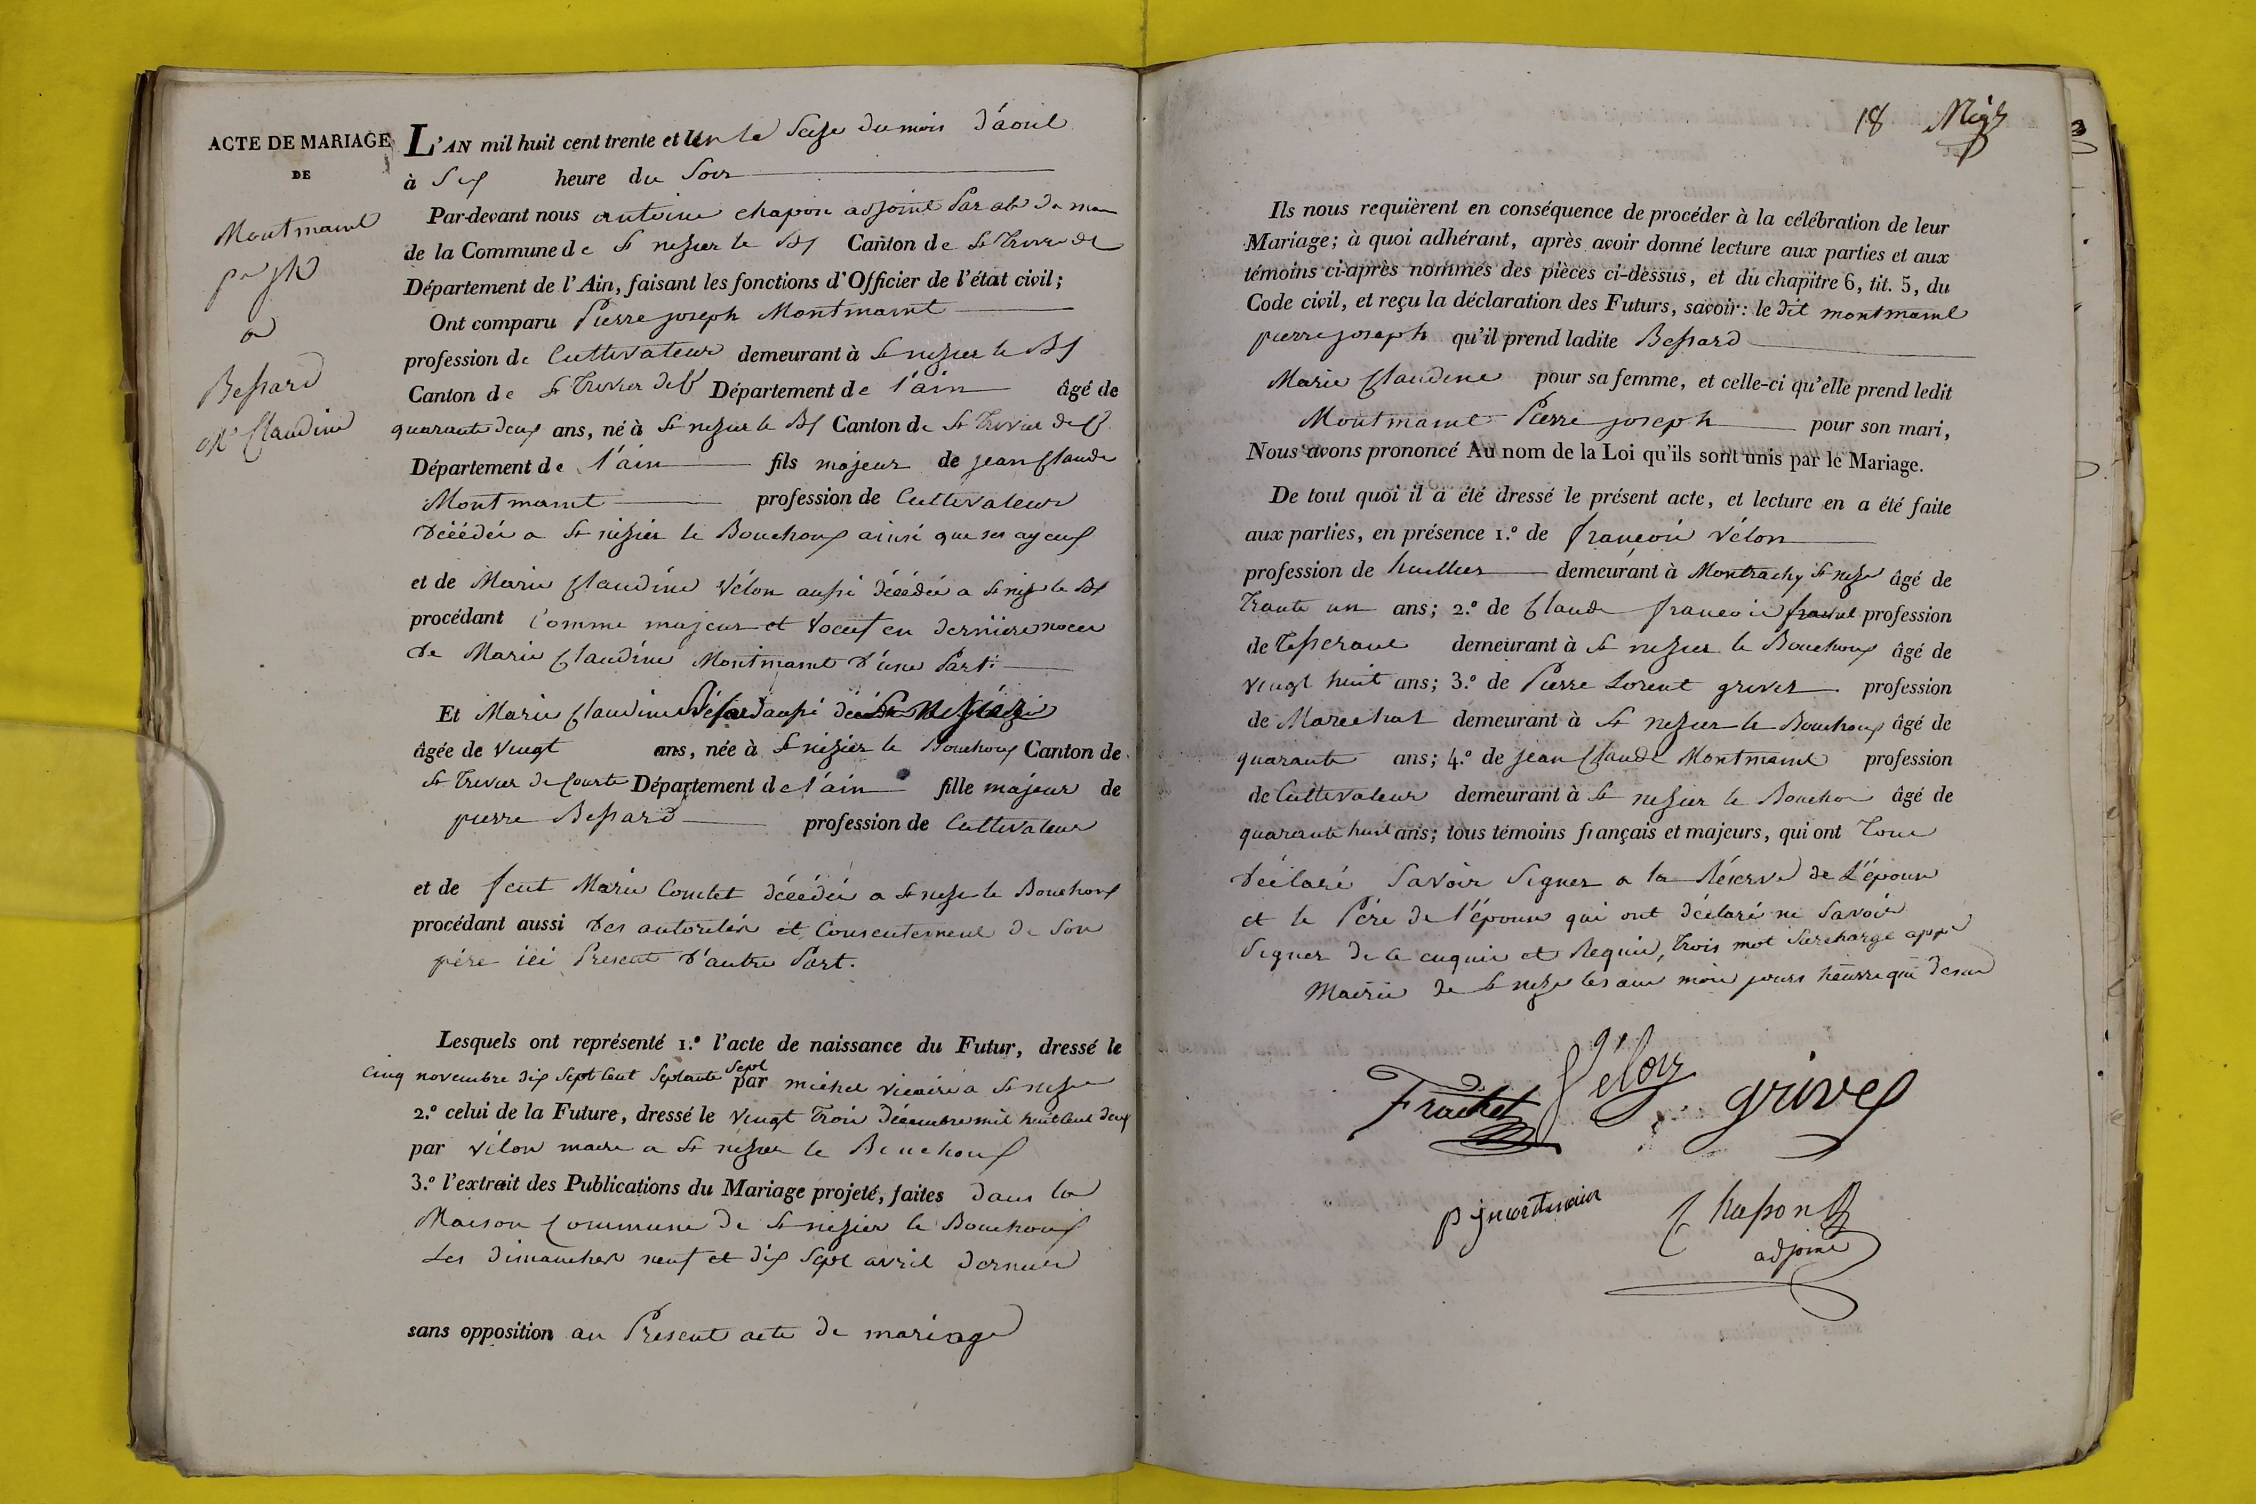 ACTE DE MARIAGE
DE
Montmaint
pre jph
a
Bessard
Mie Claudine
L'AN mil huit cent trente et Un le Seize du mois d'avril
à Six heure du Soir
Par-devant nous antoine chapon adjoint Par ab du mre
de la Commune de St nezier le Bx Canton de St Trivier de C
Département de l'Ain, faisant les fonctions d'Officier de l'état civil;
Ont comparu Pierre joseph Montmaint
profession de Cultivateur demeurant à St nizier le Bx
Canton de St Trivier de Ct Département de l'ain âgé de
quarante deux ans, né à St nezier le Bx Canton de St Trivier de C
Département de l'ain fils majeur de jean Claude
Montmaint profession de Cultivateur
Décédée a St nizier le Bouchoux ainsi que ses ayeux
et de Marie Claudine Vélon aussi décédée a St niz le Bx
procédant Comme majeur et Voeuf en dernière noces
de Marie Claudine Montmaint D'une Part
Et Marie Claudine
âgée de Vingt ans, née à St nizier le Bouchoux Canton de
St Trivier de Courte Département de l'ain fille majeur de
pierre Bessard profession de Cultivateur
et de feut Marie Comtet décédée a St nizi le Bouchoux
procédant aussi Des autorités et Consentement de Son
père ici Present D'autre Part.
Lesquels ont représenté 1.º l'acte de naissance du Futur, dressé le
Cinq novembre dix Sept Cent Septante Sept par michel vicaire a St nizier
2.º celui de la Future, dressé le Vingt Trois Décembre mil huit Cent dix
par Vélon maire a St nizier le Bouchoux
3.º l'extrait des Publications du Mariage projeté, faites dans la
Maison Commune de St nizier le Bouchoux
Les dimanches neuf et dix Sept avril dernier
sans opposition au Present acte de mariage
18
Ils nous requièrent en conséquence de procéder à la célébration de leur
Mariage; à quoi adhérant, après avoir donné lecture aux parties et aux
témoins ci-après nommés des pièces ci-dessus, et du chapitre 6, tit. 5, du
Code civil, et reçu la déclaration des Futurs, savoir: le dit montmaint
pierre joseph qu'il prend ladite Bessard
Marie Claudine pour sa femme, et celle-ci qu'elle prend ledit
Montmaint Pierre joseph pour son mari,
Nous avons prononcé Au nom de la Loi qu'ils sont unis par le Mariage.
De tout quoi il a été dressé le présent acte, et lecture en a été faite
aux parties, en présence 1.º de françois Vélon
profession de huillier demeurant à Montrachy St nezi âgé de
Trante un ans; 2.º de Claude francois frachet profession
de Tisserant demeurant à St nezier le Bouchoux âgé de
vingt huit ans; 3.º de Pierre Lorent grivet profession
de Marechal demeurant à St nezier le Bouchoux âgé de
quarante ans; 4.º de jean Claude Montmaint profession
de Cultivateur demeurant à St nezier le Bouchou âgé de
quarante huit ans; tous témoins français et majeurs, qui ont Tous
Déclaré Savoir Signer a la Réserve de L'épouse
et le Père de l'épouse qui ont déclaré ne Savoir
Signer de ce enquis et Requis, Trois mot Surcharge appé
Mairie de St nezi les an mois jours heurre que dessus
Frachet Vélon grivel
p j montmain Chapon
adjoint